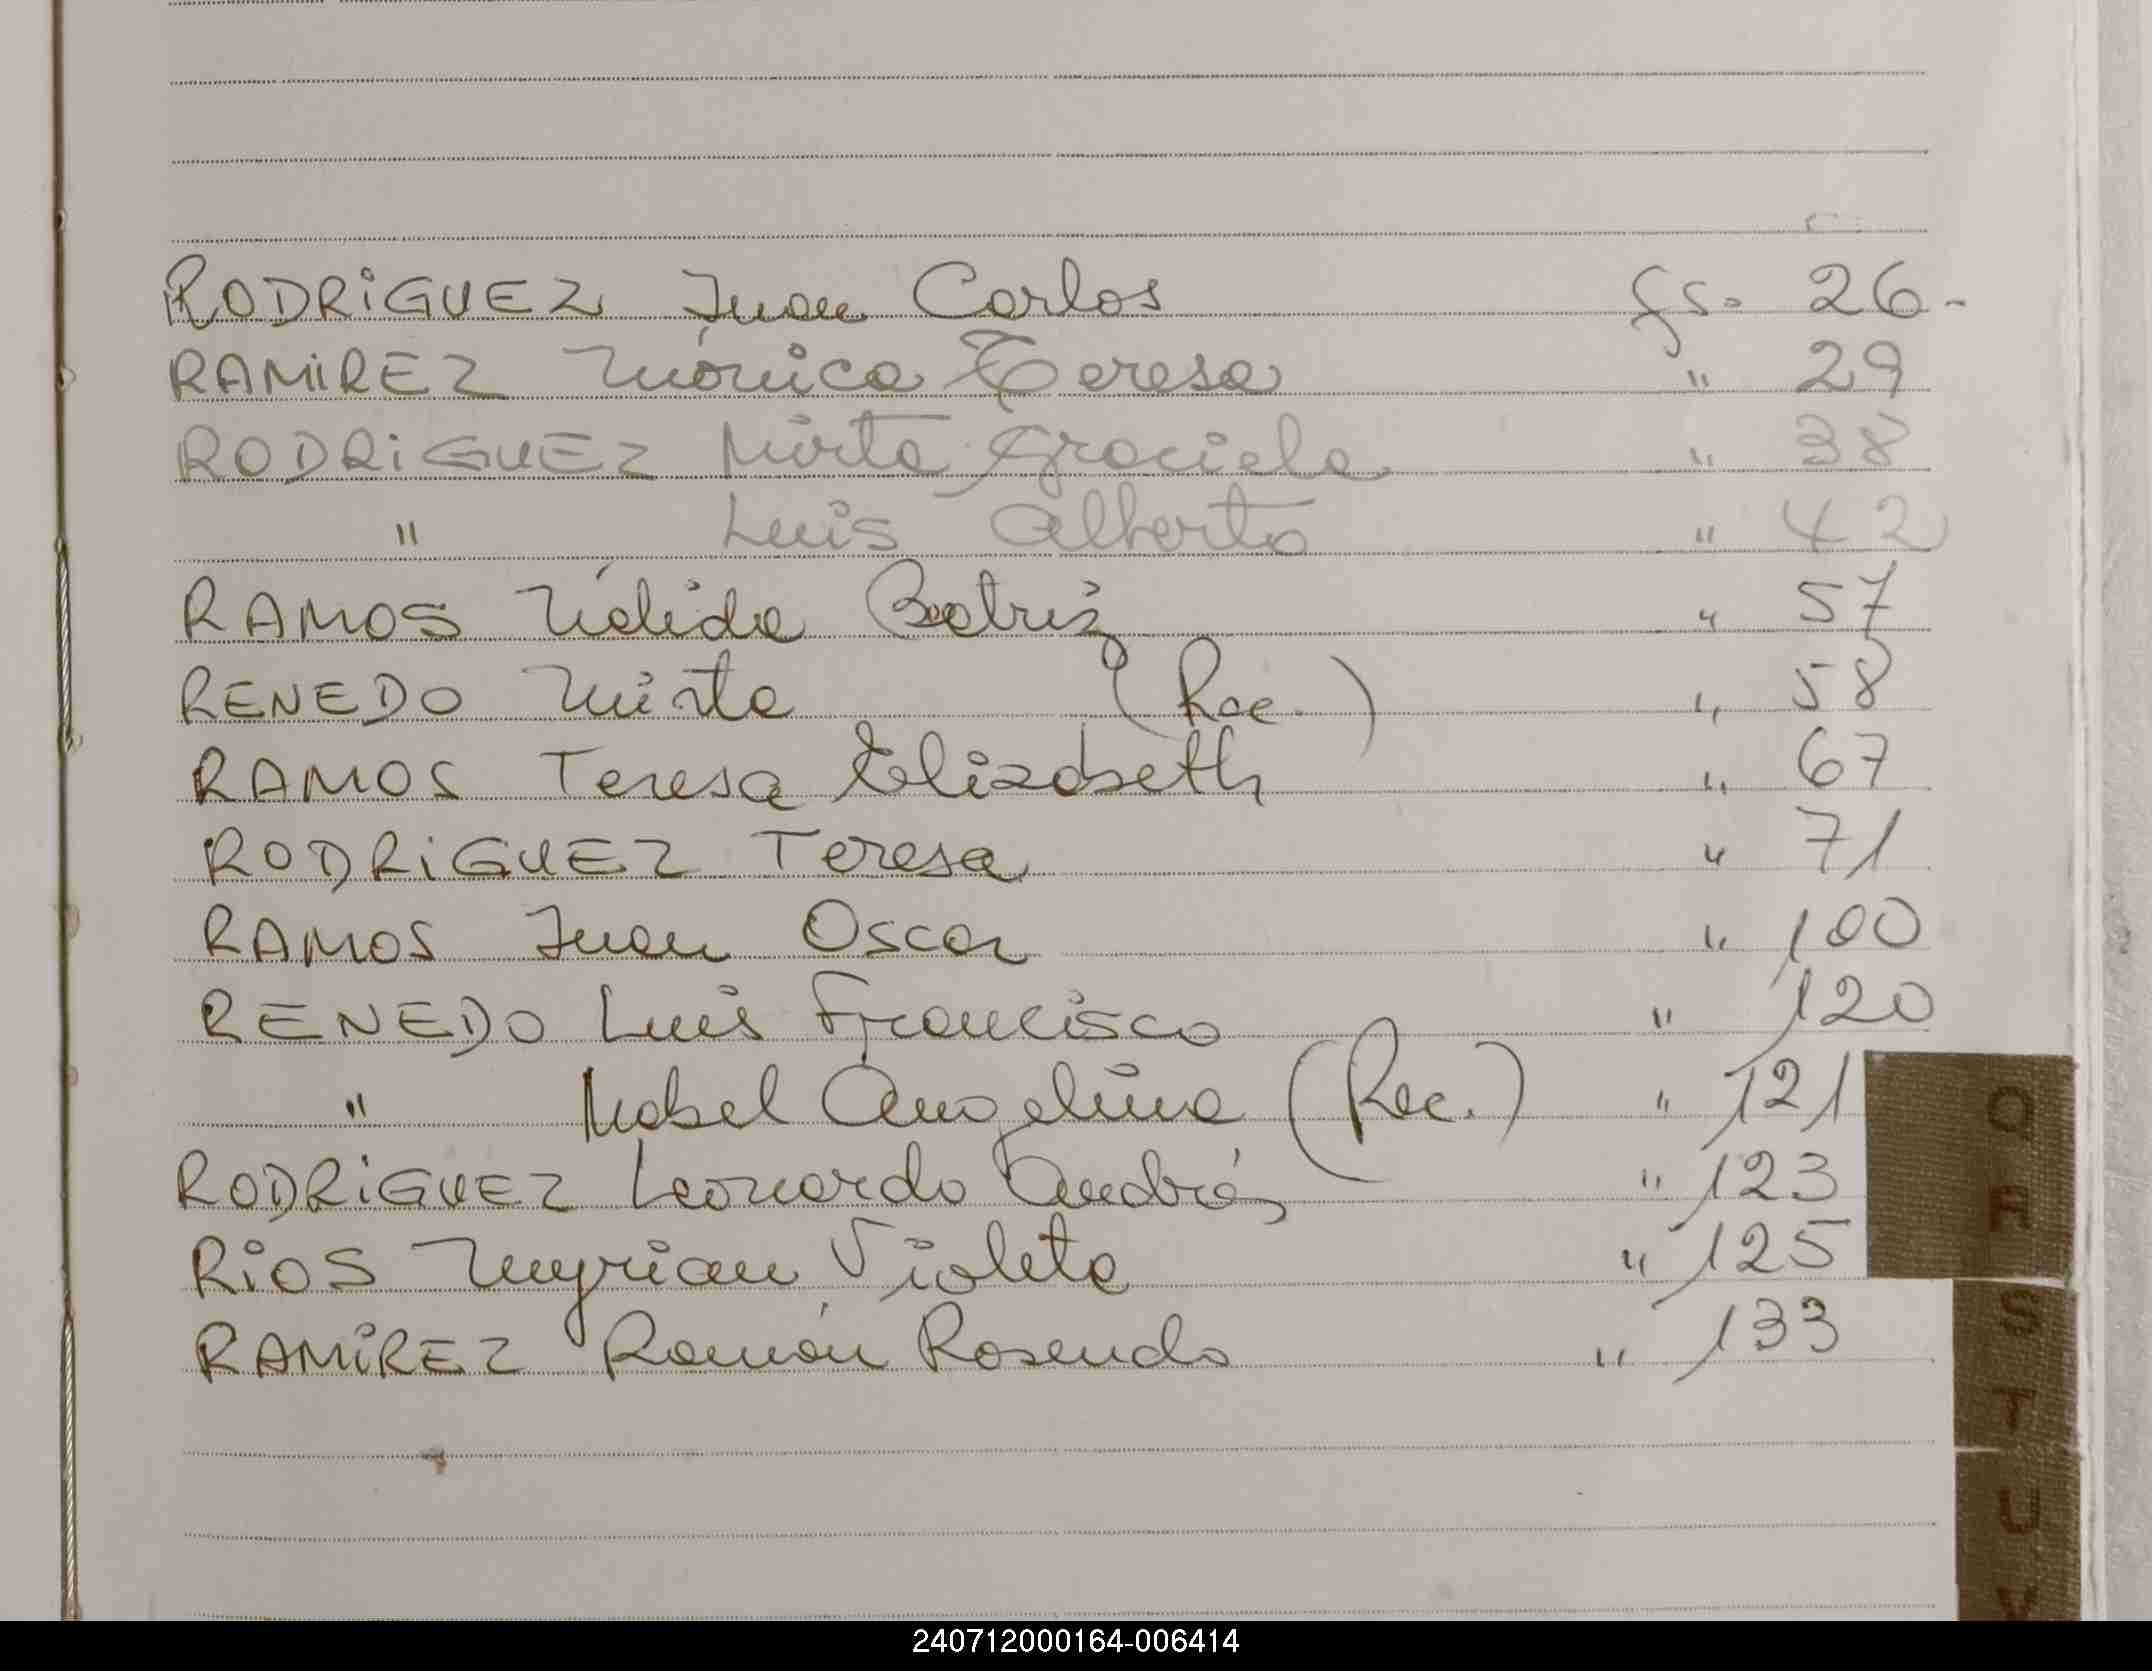 RODRiGUEZ Juan Carlos fs. 26.-
RAMIREZ Mónica Teresa " 29
RODRiGUEZ Mirta Graciela " 38
" Luis Alberto " 42
RAMOS Nélida Beatriz " 57
RENEDO Mirta (Rec.) " 58
RAMOS Teresa Elizabeth " 67
RODRiGUEZ Teresa " 71
RAMOS Juan Oscar " 100
RENEDO Luis Francisco " 120
" Mabel Angelina (Rec.) " 121
RODRiGUEZ Leonardo Andrés " 123
RiOS Myrian Violeta " 125
RAMíREZ Ramón Rosendo " 133
Q
R
S
T
U
V
240712000164-006414